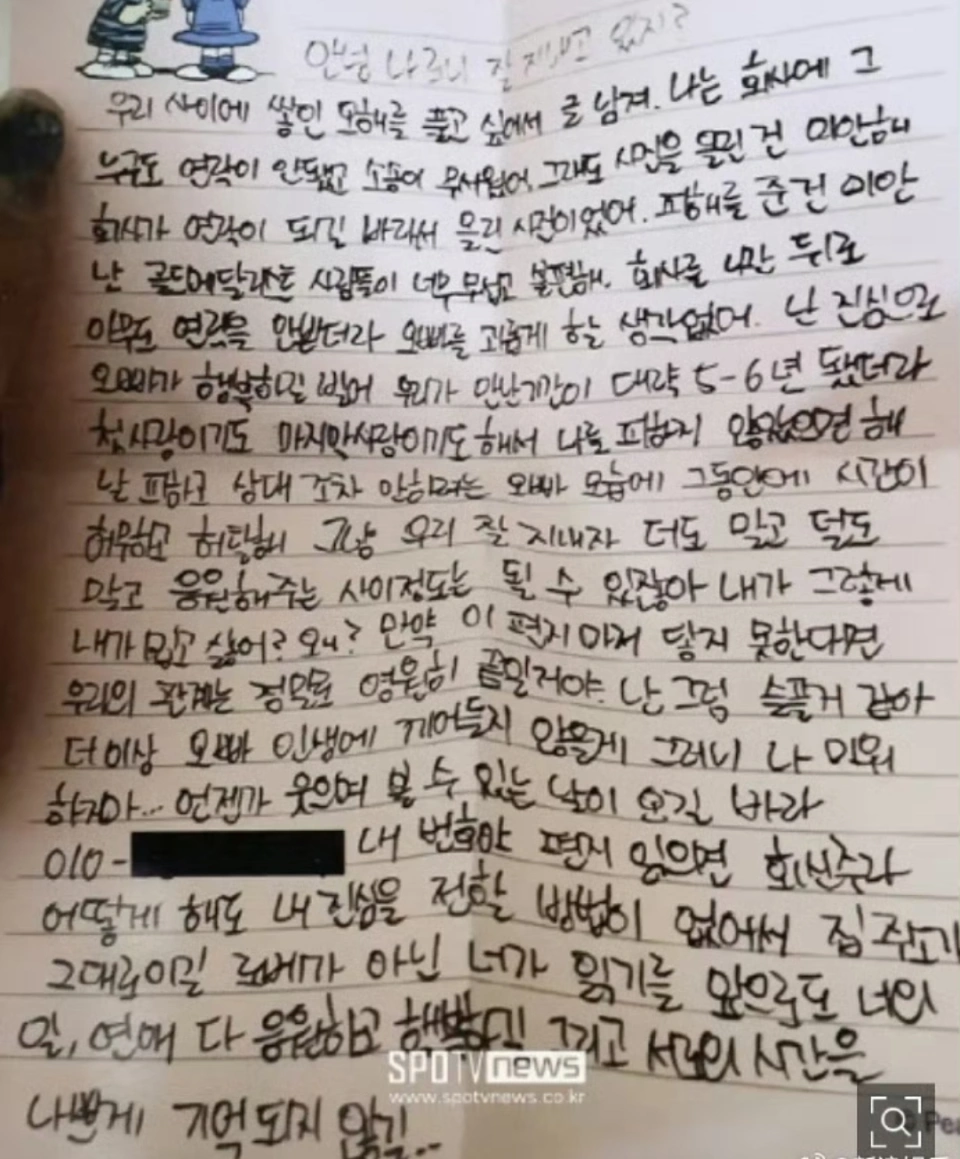 안녕 나 잘 지내고 있지?
우리 사이에 쌓인 오해를 풀고 싶어서 글 남겨. 나는 회사에 그
누구도 연락이 안됐고 소송이 무서웠어. 그래도 사진을 올린 건 미안해
회사가 연락이 되길 바라서 올린 사진이었어. 피해를 준건 미안
난 골드메달리스트 사람들이 너무 무섭고 불편해. 회사를 나간 뒤로
아무도 연락을 안받더라 오빠를 괴롭게 할 생각없어. 난 진심으로
오빠가 행복하길 빌어 우리가 만난기간이 대략 5-6년 됐더라
첫사랑이기도 마지막사랑이기도해서 나를 피하지 않았으면 해
날 피하고 상대 조차 안하려는 오빠 모습에 그동안에 시간이
허무하고 허탈해 그냥 우리 잘 지내자 더도 말고 덜도
말고 응원해주는 사이정도는 될 수 있잖아 내가 그렇게
내가 밉고 싫어? 왜? 만약 이 편지마저 닿지 못한다면
우리의 관계는 정말로 영원히 끝일거야 난 그럼 슬플거 같아
더이상 오빠 인생에 끼어들지 않을게 그러니 나 미워
하지마... 언젠가 웃으며 볼 수 있는 날이 오길 바라
010- 내 번호야 편지 읽으면 회신주라
어떻게 해도 내 진심을 전할 방법이 없어서 집 주소가
그대로이길 로베가 아닌 너가 읽기를 앞으로도 너의
일, 연애 다 응원하고 행복하길 그리고 서로의 시간을
나쁘게 기억되지 않길..
SPOTV news
www.spotvnews.co.kr